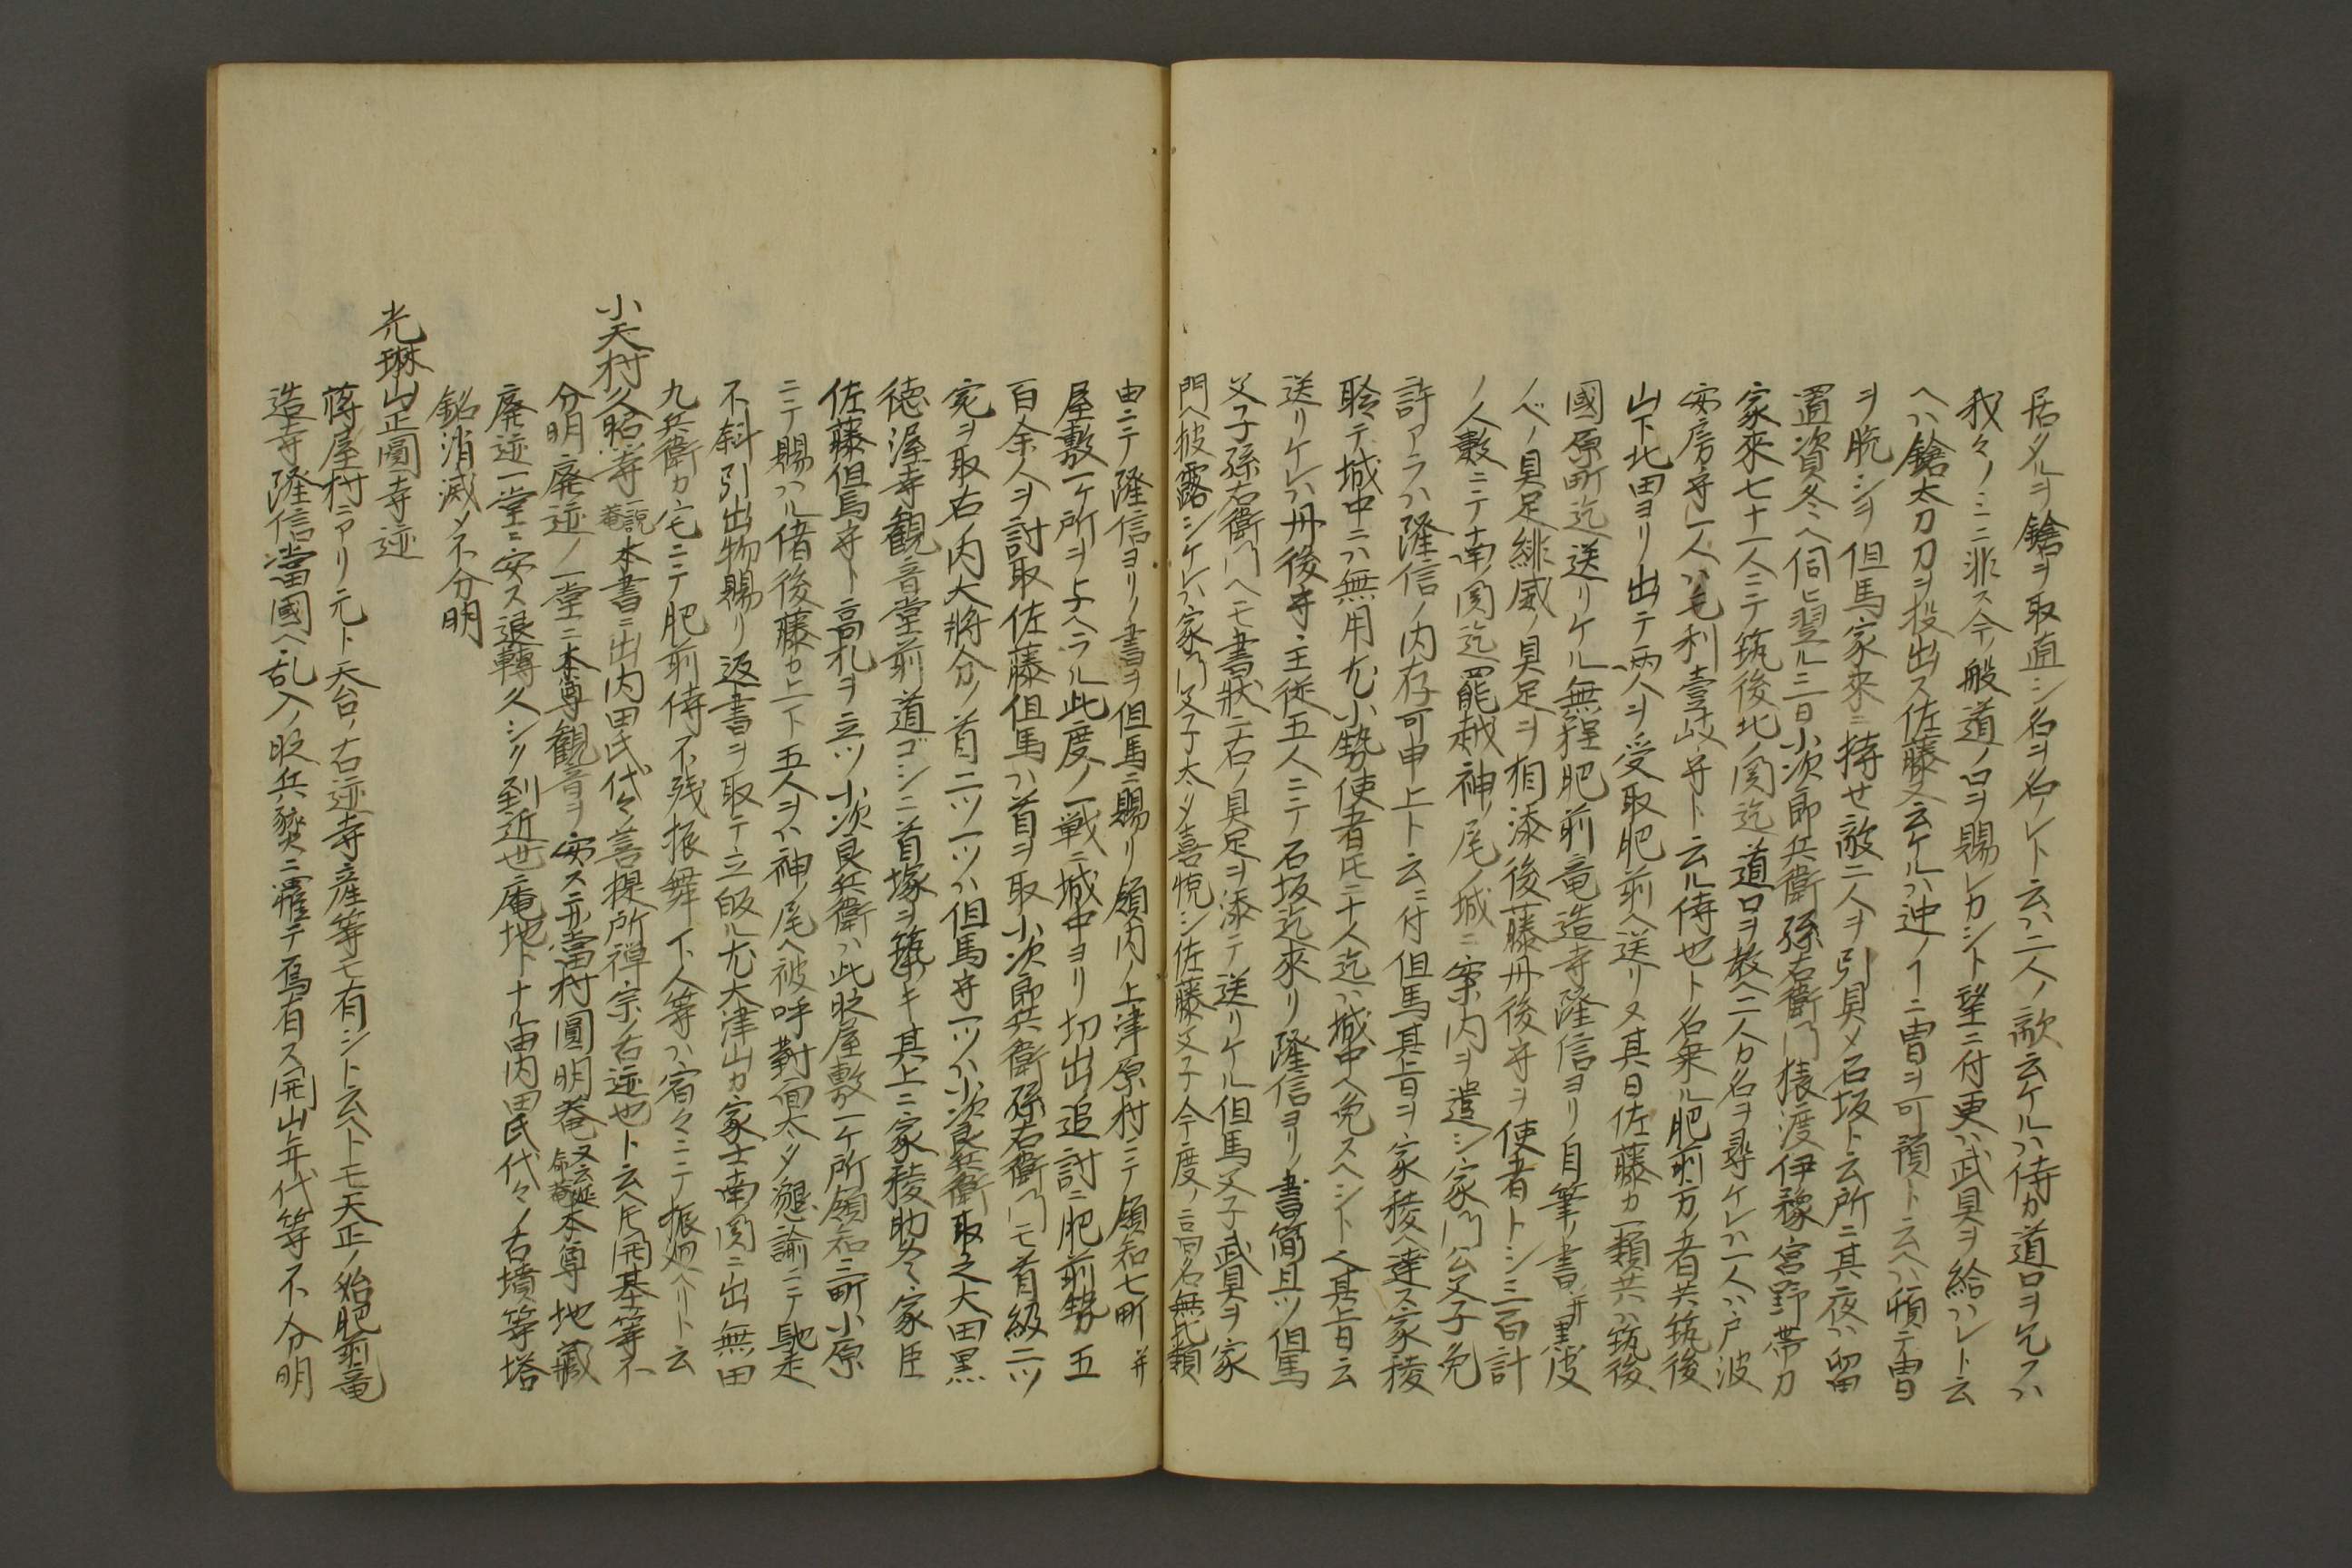 居タルヲ鎗ヲ取直シ名ヲ名ノレト云ハ二人ノ敵云ケルハ侍カ道ロヲ乞フハ
我々ノミニ非ス今ノ般道ノロヲ賜レカシト望ニ付更ハ武具ヲ給ハレト云
ヘハ鎗太刀刀ヲ投出ス佐藤又云ケルハ迚ノヿニ冑ヲ可預ト云ヘハ頓テ冑
ヲ脱シヲ但馬家来ニ持セ敵二人ヲ引具メ石坂ト云所ニ其夜ハ留
置資冬ヘ伺ヒ翌ル三日小次郎兵衛孫右衛門猿渡伊豫宮野帯刀
家来七十一人ニテ筑後北ノ関迄道ロヲ教ヘ二人カ名ヲ尋ケレハ一人ハ戸波
安房守一人ハ毛利壹岐守ト云ル侍也ト名乗ル肥前方ノ者共筑後
山下北田ヨリ出テ両人ヲ受取肥前ヘ送リヌ其日佐藤カ一類共ハ筑後
國原町迄送リケル無程肥前竜造寺隆信ヨリ自筆ノ書并黒皮
ノベノ具足緋威ノ具足ヲ相添後藤丹後守ヲ使者トシ三百計
ノ人数ニテ南ノ関迄罷越神ノ尾ノ城ニ案内ヲ遣シ家門公父子免
許アラハ隆信ノ内存可申上ト云ニ付但馬其旨ヲ家稜ヘ達ス家稜
聆テ城中ニハ無用尤小勢使者圧二十人迄ハ城中ヘ免スヘシト人其旨云
送リケレハ丹後守主従五人ニテ石坂迄來リ隆信ヨリノ書簡且ツ但馬
父子孫右衛門ヘモ書状二右ノ具足ヲ添テ送リケル但馬父子武具ヲ家
門ヘ披露シケレハ家門父子太タ喜悦シ佐藤父子今度ノ高名無比類
由ニテ隆信ヨリノ書ヲ但馬ニ賜リ領内ノ上津原村ニテ領知七町并
屋敷一ケ所ヲ与ヘラル此度ノ一戦ニ城中ヨリ切出追討ニ肥前勢五
百余人ヲ討取佐藤但馬ハ首ヲ取小次郎兵衛孫右衛門モ首級二ツ
宛ヲ取右ノ内大将分ノ首二ツ一ツハ但馬守一ツハ小次良兵衛取之大田黒
徳渥寺観音堂前道ゴシニ首塚ヲ築キ其上ニ家稜助久々家臣
佐藤但馬守ト高札ヲ立ツ小次良兵衛ハ此時屋敷一ケ所領知三町小原
ニテ賜ハル偖後藤カ上下五人ヲハ神ノ尾ヘ被呼對面太タ懇諭ニテ馳走
不斜引出物賜リ返書ヲ取テ立皈ル尤大津山カ家士南ノ関ニ出無田
九兵衛カ宅ニテ肥前侍不残振舞下人等ハ宿々ニテ振廻ヘリト云
小天村久昭寺一説菴本書ニ出内田氏代々ノ菩提所禅宗ノ古迹也ト云ヘ圧開基等不
分明廃迹ノ一堂ニ本尊観音ヲ安ス亦當村圓明菴又云延命菴本尊地藏
廃迹一堂ニ安ス退轉久シク到近世庵地トナル由内田氏代々ノ古墳等塔
銘消滅メ不分明
光琳山正圓寺迹
蒋屋村ニアリ元ト天台ノ古迹寺産等モ有シト云ヘトモ天正ノ始肥前竜
造寺隆信當國ヘ乱入ノ時兵燹ニ罹テ烏有ス開山年代等不分明